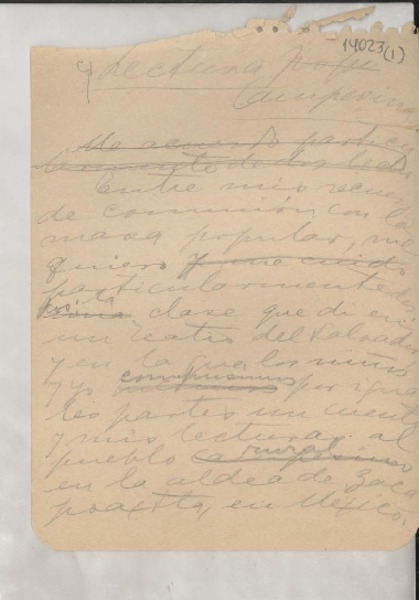 14023(1)
Lectura
Campesina
Me acuerdo particu
larmente de dos
Entre mis recuer
de comunión con la
masa popular, me
quiero y me cuido
particularmente de
la clase que di en
un Teatro del Salvador
y en la que los niños
y yo compusimos por igua
les partes un cuento
y mis lecturas al
pueblo rural campesino
en la aldea de Zaca
poaxtla, en México.